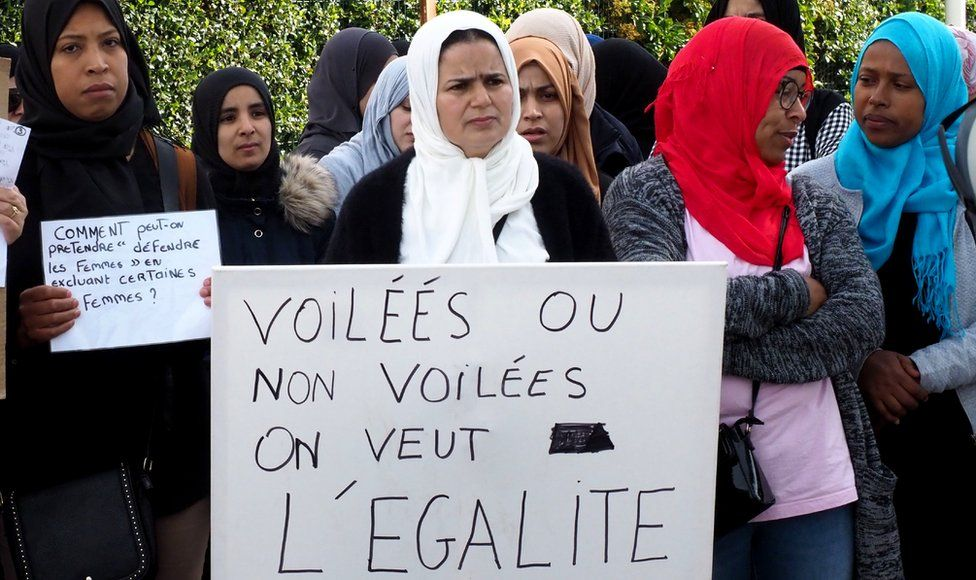 COMMENT PEUT-ON
PRETENDRE "DÉFENDRE
LES FEMMES" EN
EXCLUANT CERTAINES
FEMMES ?
VOILÉÉS OU
NON VOILÉES
ON VEUT
L'EGALITE